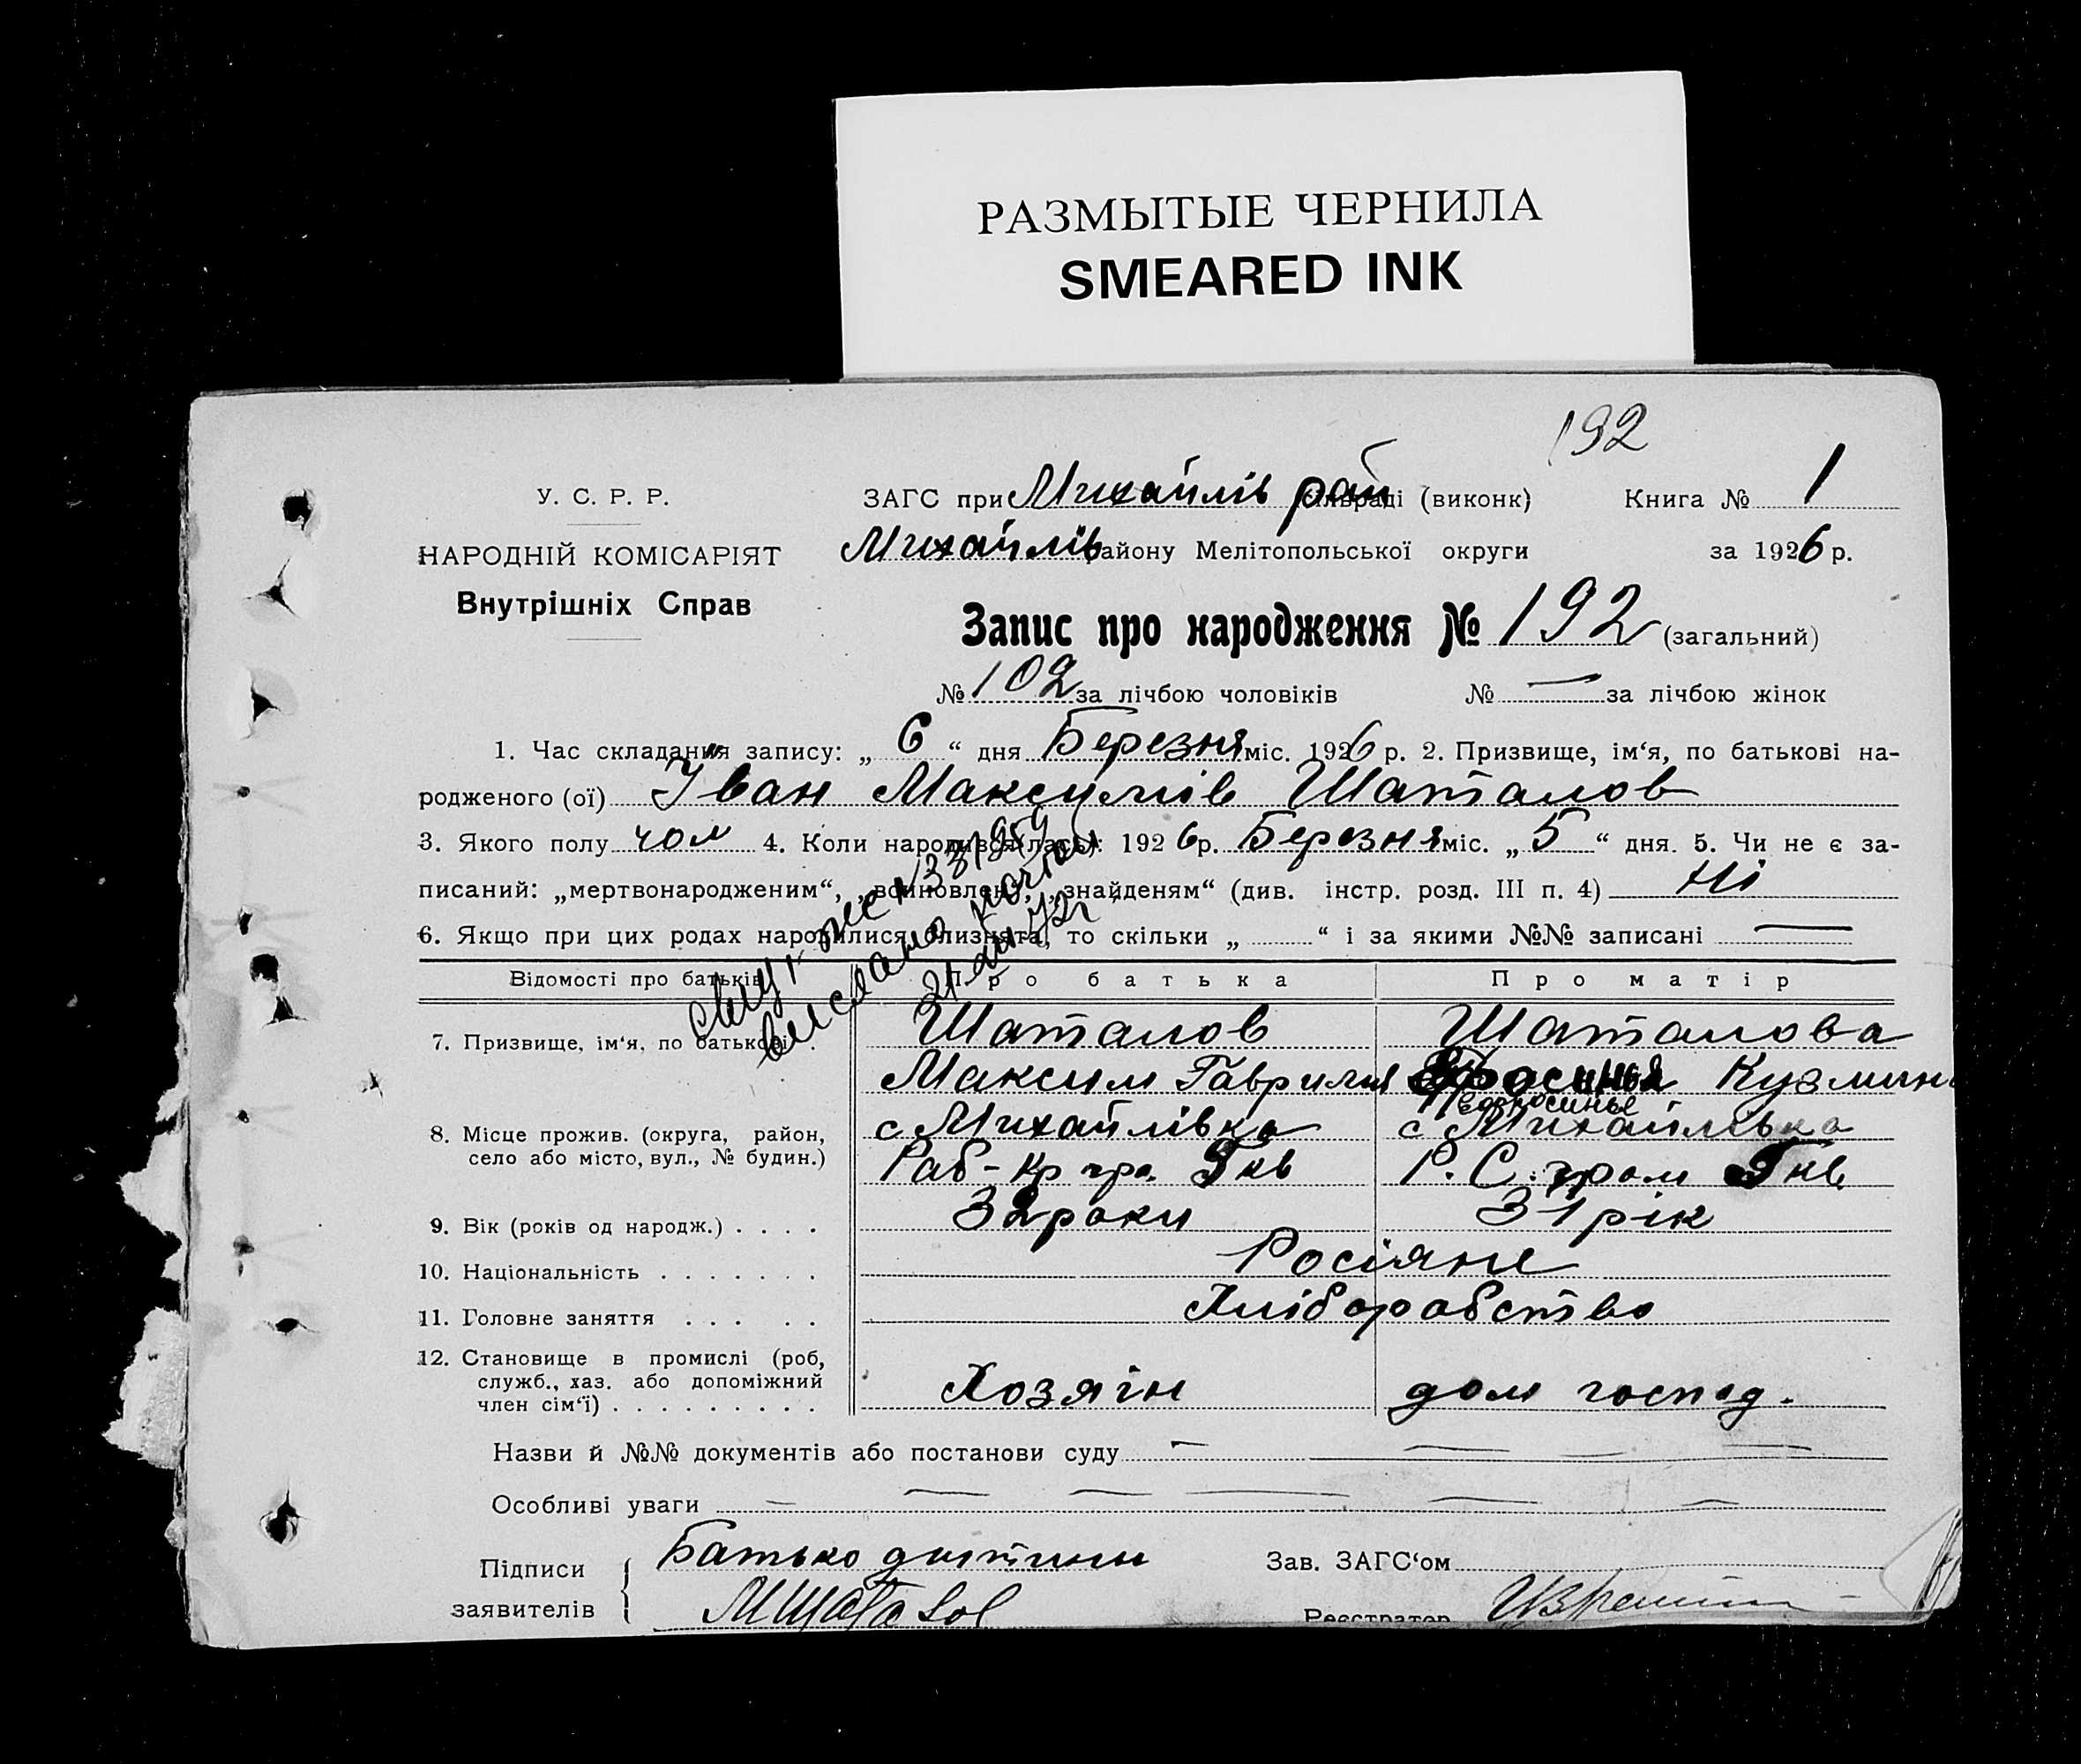 РАЗМЫТЫЕ ЧЕРНИЛА
SMEARED INK
192
У. С. Р. Р.
ЗАГС при Михайлів рай сільраді (виконк) Книга № 1
НАРОДНІЙ КОМІСАРІЯТ
Михайлів району Мелітопольської округи за 1926 р.
Внутрішніх Справ
Запис про народження № 192 (загальний)
№ 102 за лічбою чоловіків № — за лічбою жінок
1. Час складання запису: „ 6 “ дня Березня міс. 1926 р. 2. Призвище, ім‘я, по батькові на-
родженого (ої) Іван Максимів Шаталов
3. Якого полу чол 4. Коли народився(лась): 1926 р. Березня міс. „ 5 “ дня. 5. Чи не є за-
писаний: „мертвонародженим“, „знайденям“ (див. інстр. розд. III п. 4) Ні
6. Якщо при цих родах народилися близнята, то скільки „ “ і за якими №№ записані —
выслано почтой
Відомості про батьків Про батька Про матір
7. Призвище, ім‘я, по батькові . Шаталов Шаталова
Максим Гаврилів Кузмин
8. Місце прожив. (округа, район, с Михайлівка с Михайлівка
село або місто, вул., № будин.) Раб-Кр гр. Р. С. гром
9. Вік (років од народж.) . . . . 32 роки 31 рік
10. Національність . . . . . . . Росіяне
11. Головне заняття . . . . . Хліборобство
12. Становище в промислі (роб,
служб., хаз. або допоміжний Хозяін дом господ.
член сім‘ї) . . . . . . . . .
Назви й №№ документів або постанови суду — — — —
Особливі уваги — — — — — —
Підписи Батько дитини Зав. ЗАГС‘ом
заявителів МШаталов Реєстратор